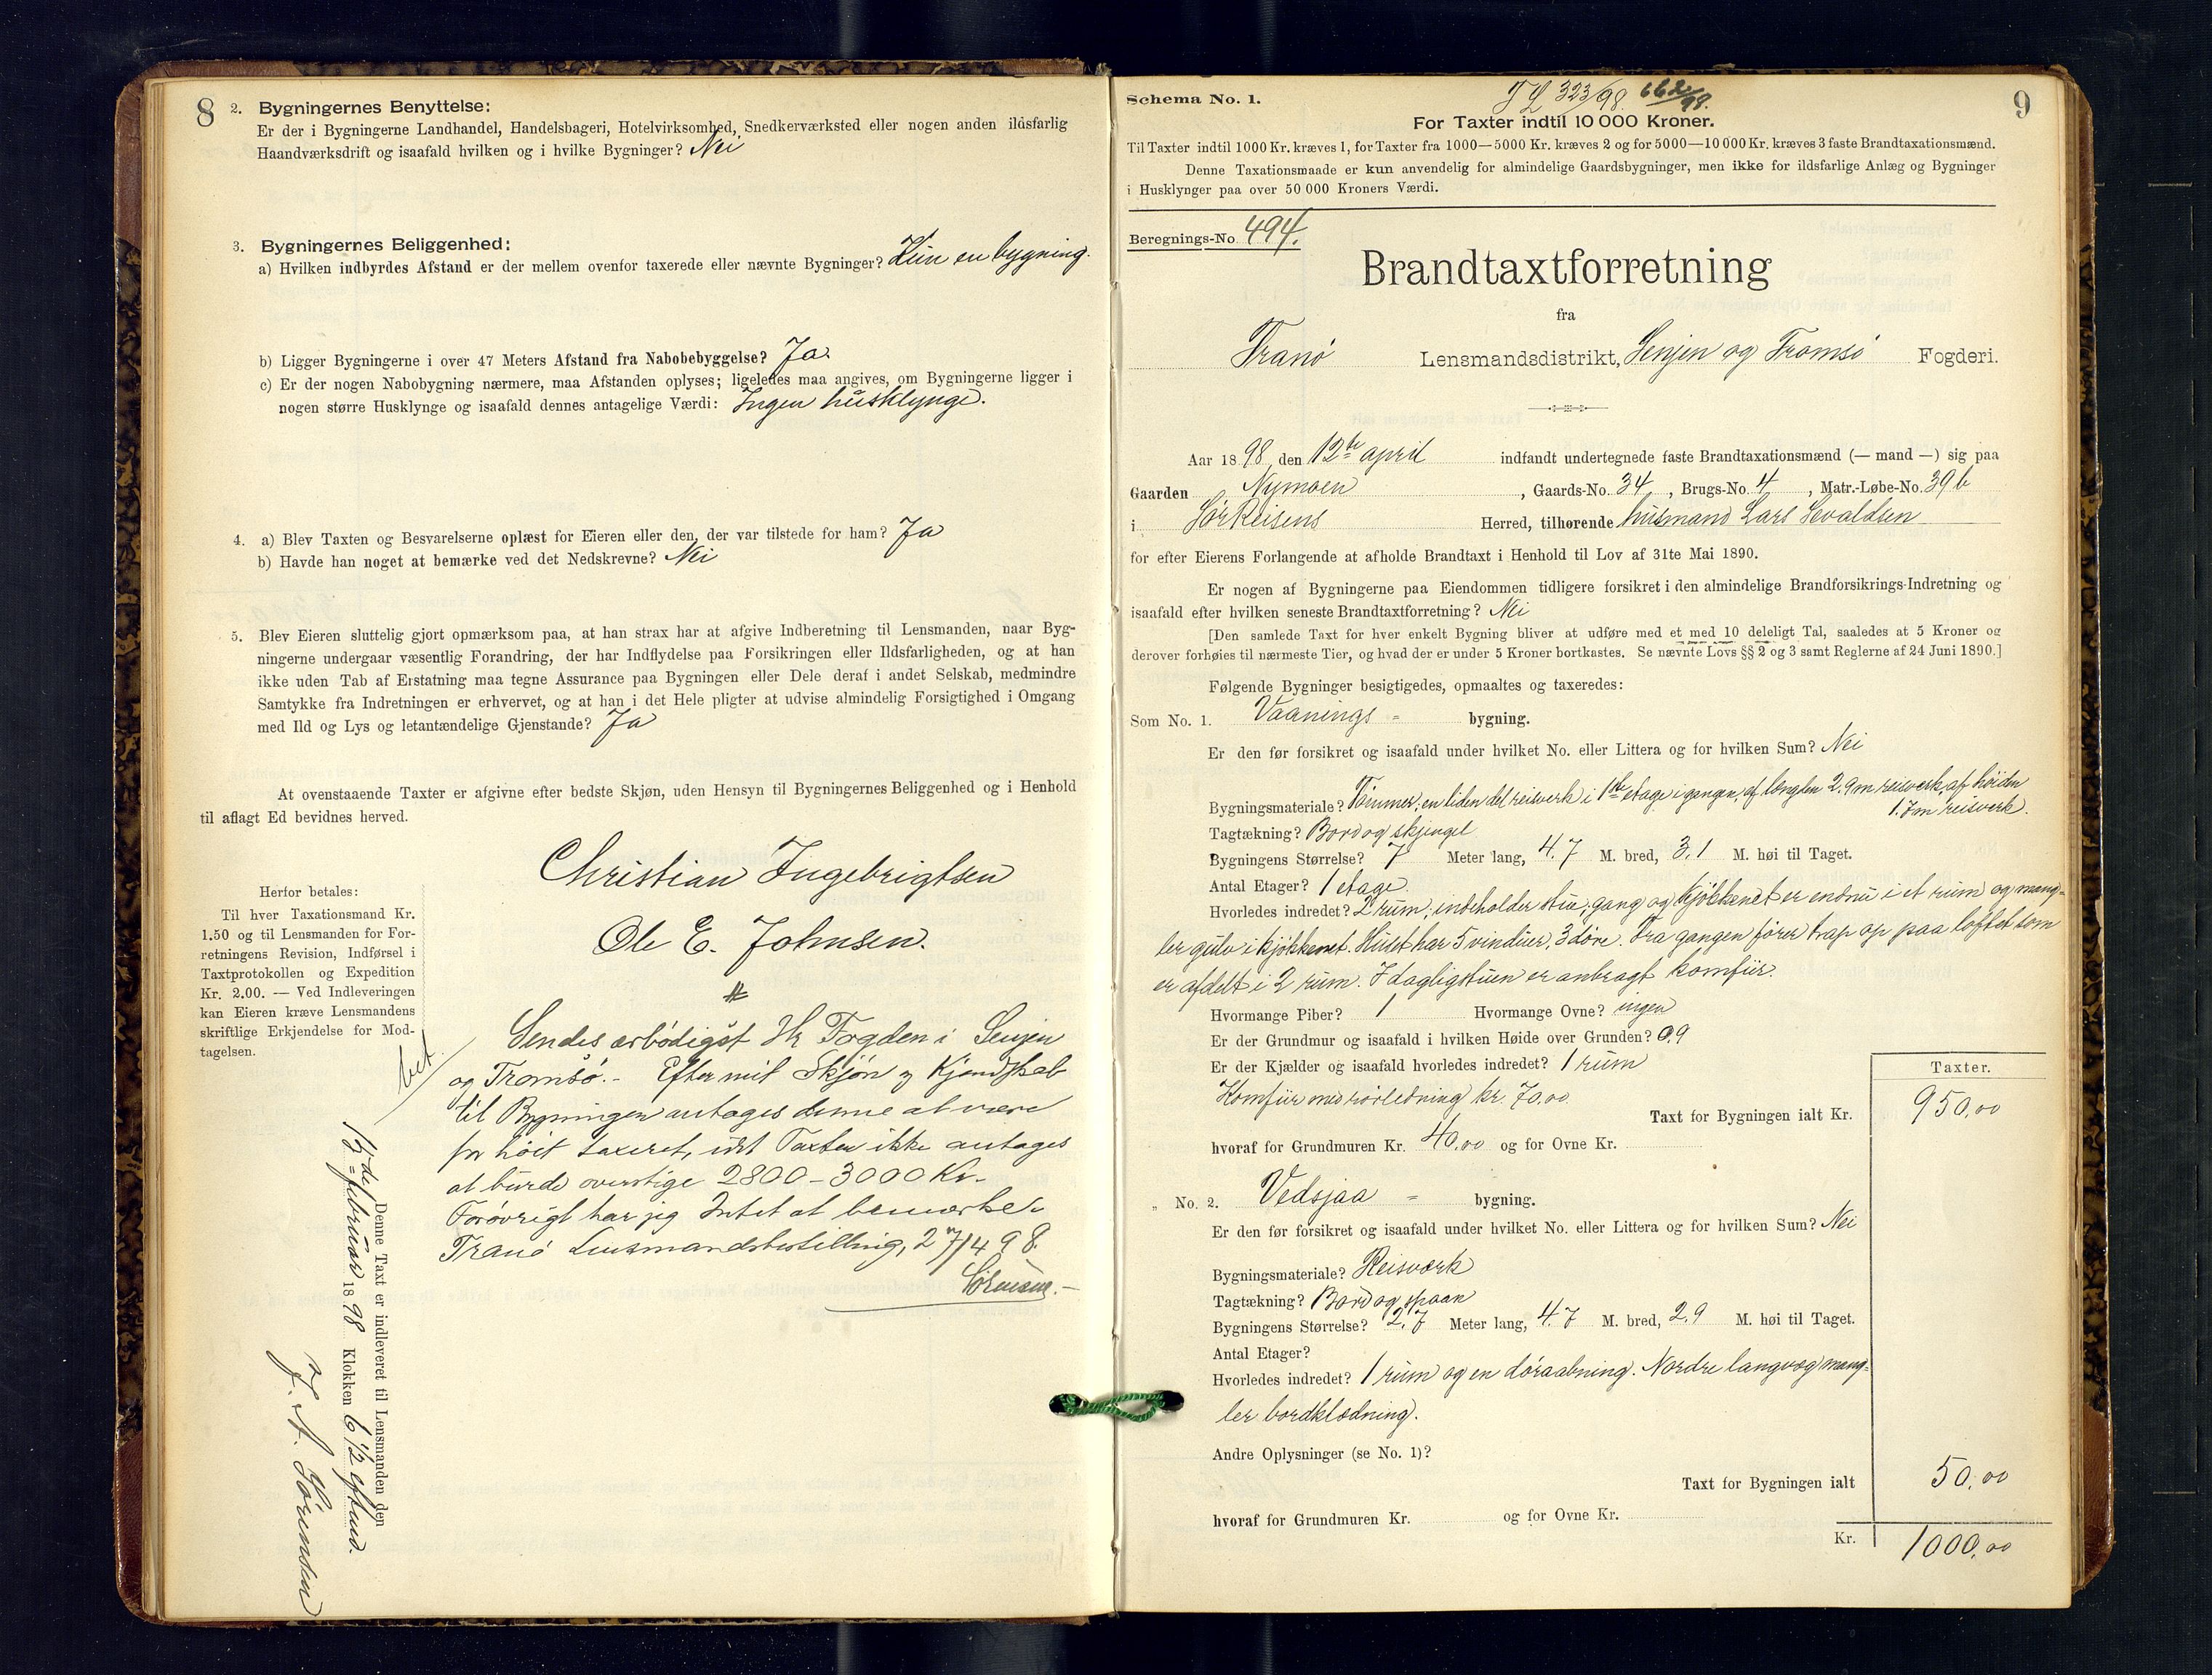 8
2. Bygningernes Benyttelse:
Er der i Bygningerne Landhandel, Handelsbageri, Hotelvirksomhed, Snedkerværksted eller nogen anden ildsfarlig
Haandværksdrift og isaafald hvilken og i hvilke Bygninger? Nei
3. Bygningernes Beliggenhed:
a) Hvilken indbyrdes Afstand er der mellem ovenfor taxerede eller nævnte Bygninger? Kun en bygning.
b) Ligger Bygningerne i over 47 Meters Afstand fra Nabobebyggelse? Ja.
c) Er der nogen Nabobygning nærmere, maa Afstanden oplyses; ligeledes maa angives, om Bygningerne ligger i
nogen større Husklynge og isaafald dennes antagelige Værdi: Ingen husklynge.
4. a) Blev Taxten og Besvarelserne oplæst for Eieren eller den, der var tilstede for ham? Ja
b) Havde han noget at bemærke ved det Nedskrevne? Nei
5. Blev Eieren sluttelig gjort opmærksom paa, at han strax har at afgive Indberetning til Lensmanden, naar Byg-
ningerne undergaar væsentlig Forandring, der har Indflydelse paa Forsikringen eller Ildsfarligheden, og at han
ikke uden Tab af Erstatning maa tegne Assurance paa Bygningen eller Dele deraf i andet Selskab, medmindre
Samtykke fra Indretningen er erhvervet, og at han i det Hele pligter at udvise almindelig Forsigtighed i Omgang
med Ild og Lys og letantændelige Gjenstande? Ja
At ovenstaaende Taxter er afgivne efter bedste Skjøn, uden Hensyn til Bygningernes Beliggenhed og i Henhold
til aflagt Ed bevidnes herved.
Christian Ingebrigtsen
Ole E. Johnsen.
Herfor betales:
Til hver Taxationsmand Kr.
1.50 og til Lensmanden for For-
retningens Revision, Indførsel i
Taxtprotokollen og Expedition
Kr. 2.00. — Ved Indleveringen
kan Eieren kræve Lensmandens
skriftlige Erkjendelse for Mod-
tagelsen.
bet.
Sendes ærbödigst Hr Fogden i Senjen
og Tromsö. - Efter mit Skjön og Kjendskab
til Bygningen antages denne at være
for höit taxeret, idet Taxten ikke antages
at burde overstige 2800 - 3000 Kr.
Forøvrigt har jeg Intet at bemærke.
Tranö Lensmandsbestilling, 27/4 98.
Sörensen. -
Denne Taxt er indleveret til Lensmanden den
13de februar 1898 Klokken 6 1/2 eftmd.
J. A. Sörensen
9
Schema No. 1.
J L 323/98. 662/98.
For Taxter indtil 10 000 Kroner.
Til Taxter indtil 1000 Kr. kræves 1, for Taxter fra 1000—5000 Kr. kræves 2 og for 5000—10 000 Kr. kræves 3 faste Brandtaxationsmænd.
Denne Taxationsmaade er kun anvendelig for almindelige Gaardsbygninger, men ikke for ildsfarlige Anlæg og Bygninger
i Husklynger paa over 50 000 Kroners Værdi.
Beregnings-No. 494.
Brandtaxtforretning
fra
Tranö Lensmandsdistrikt, Senjen og Tromsö Fogderi.
Aar 1898, den 12te april indfandt undertegnede faste Brandtaxationsmænd (— mand —) sig paa
Gaarden Nymoen, Gaards-No. 34, Brugs-No. 4, Matr.-Løbe-No. 39 b
i SörReisens Herred, tilhørende husmand Lars Sevaldsen
for efter Eierens Forlangende at afholde Brandtaxt i Henhold til Lov af 31te Mai 1890.
Er nogen af Bygningerne paa Eiendommen tidligere forsikret i den almindelige Brandforsikrings-Indretning og
isaafald efter hvilken seneste Brandtaxtforretning? Nei
[Den samlede Taxt for hver enkelt Bygning bliver at udføre med et med 10 deleligt Tal, saaledes at 5 Kroner og
derover forhøies til nærmeste Tier, og hvad der er under 5 Kroner bortkastes. Se nævnte Lovs §§ 2 og 3 samt Reglerne af 24 Juni 1890.]
Følgende Bygninger besigtigedes, opmaaltes og taxeredes:
Som No. 1. Vaanings = bygning.
Er den før forsikret og isaafald under hvilket No. eller Littera og for hvilken Sum? Nei
Bygningsmateriale? Tömmer, en liden del reisverk i 1ste etage i gangen, af længden 2.9 m reisverk, af höiden
1.7 m reisverk.
Tagtækning? Bord og skjengel
Bygningens Størrelse? 7 Meter lang, 4.7 M. bred, 3.1 M. høi til Taget.
Antal Etager? 1 etage.
Hvorledes indredet? 2 rum; indeholder stue; gang og kjökkenet er endnu i et rum og mang-
ler gulv i kjökkenet. Huset har 5 vinduer, 3 döre. Fra gangen förer trap op paa loftet som
er afdelt i 2 rum. I dagligstuen er anbragt komfur.
Hvormange Piber? 1 Hvormange Ovne? ingen
Er der Grundmur og isaafald i hvilken Høide over Grunden? 0,9
Er der Kjælder og isaafald hvorledes indredet? 1 rum
Komfur med rörledning kr. 70.00
Taxter.
Taxt for Bygningen ialt Kr. 950,00
hvoraf for Grundmuren Kr. 40,00 og for Ovne Kr.
„ No. 2. Vedsjaa = bygning.
Er den før forsikret og isaafald under hvilket No. eller Littera og for hvilken Sum? Nei
Bygningsmateriale? Reisværk
Tagtækning? Bord og spaan
Bygningens Størrelse? 2,7 Meter lang, 4.7 M. bred, 2,9 M. høi til Taget.
Antal Etager?
Hvorledes indredet? 1 rum og en döraabning. Nordre langvæg mang-
ler bordklædning.
Andre Oplysninger (se No. 1)?
Taxt for Bygningen ialt 50,00
hvoraf for Grundmuren Kr. og for Ovne Kr.
Kr. 1000,00